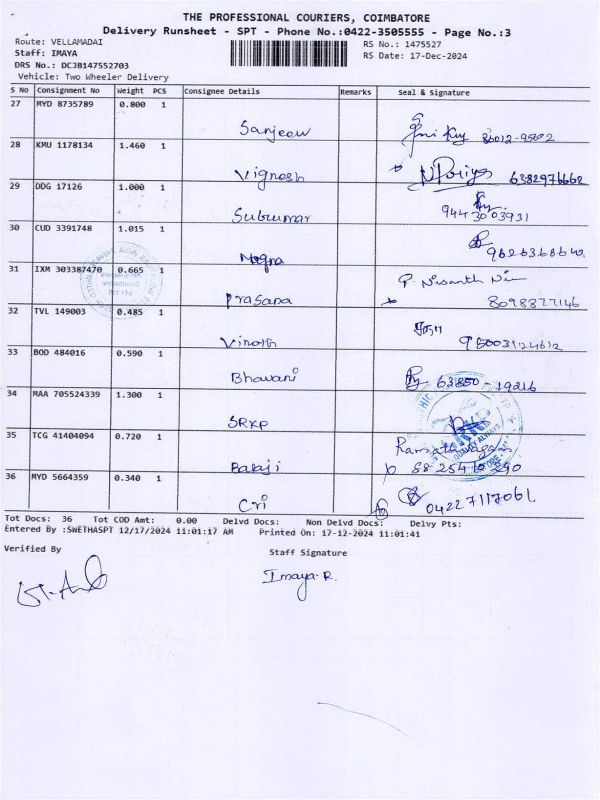 THE PROFESSIONAL COURIERS, COIMBATORE
Delivery Runsheet - SPT - Phone No.:0422-3505555 - Page No.:3
Route: VELLAMADAI RS No.: 1475527
Staff: IMAYA RS Date: 17-Dec-2024
DRS No.: DCJB147552703
Vehicle: Two Wheeler Delivery
S No Consignment No Weight PCS Consignee Details Remarks Seal & Signature
27 MYD 8735789 0.800 1
Sanjeev 86012-95602
28 KMU 1178134 1.460 1
Vignesh 6382976662
29 DDG 17126 1.000 1
Sukumar 9443003931
30 CUD 3391748 1.015 1
Megna
31 IXM 303387470 0.665 1
Prasana P. Nisanth 8098877146
32 TVL 149003 0.485 1
Vinoth 95003124612
33 BOD 484016 0.590 1
Bhavani 63850-19216
34 MAA 705524339 1.300 1
SRKP
35 TCG 41404094 0.720 1
Balaji
36 MYD 5664359 0.340 1
Cri 04227117061.
Tot Docs: 36 Tot COD Amt: 0.00 Delvd Docs: Non Delvd Docs: Delvy Pts:
Entered By :SWETHASPT 12/17/2024 11:01:17 AM Printed On: 17-12-2024 11:01:41
Verified By Staff Signature
Imaya-R.